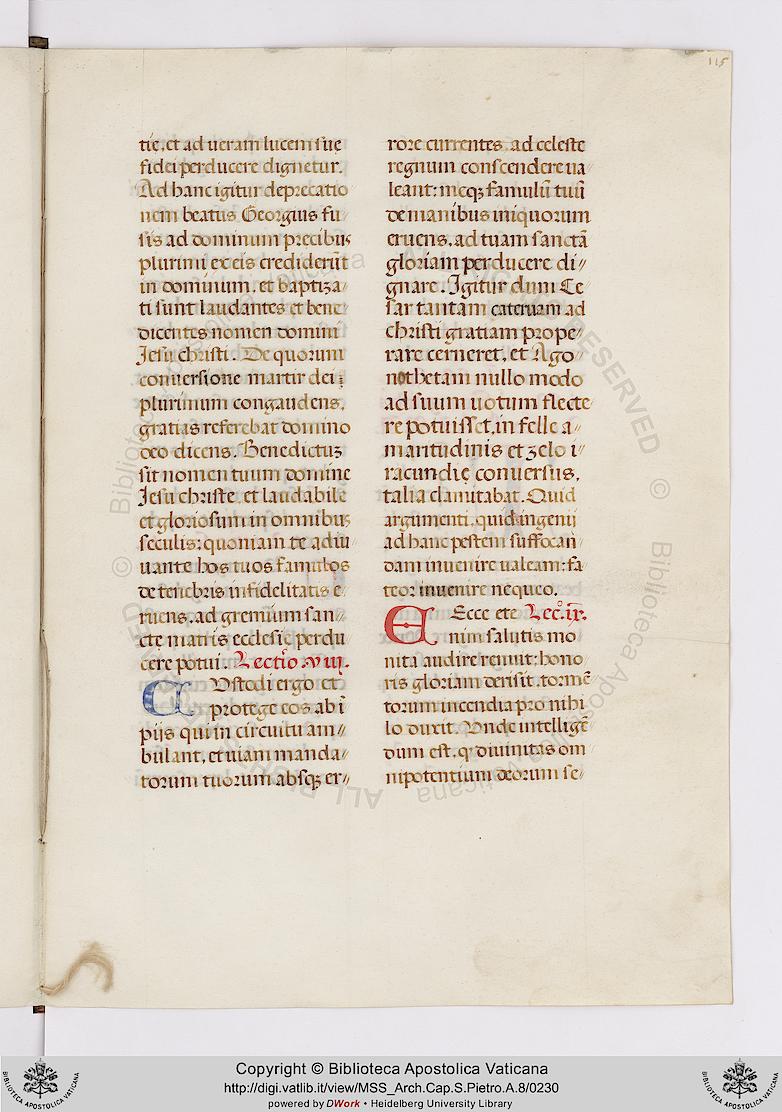 115
tie, et ad ueram lucem sue
fidei perducere dignetur.
Ad hanc igitur deprecatio
nem beatus Georgius fu/
sis ad dominum precibus
plurimi ex eis crediderūt
in dominum, et baptiza/
ti sunt laudantes et bene
dicentes nomen domini
Jesu christi. De quorum
conuersione martir dei
plurimum congaudens,
gratias referebat domino
deo dicens. Benedictuʒ
sit nomen tuum domine
Jesu christe, et laudabile
et gloriosum in omnibus
seculis: quoniam te adiu/
uante hos tuos famulos
de tenebris infidelitatis e/
ruens, ad gremium san/
cte matris ecclesie perdu
cere potui. Lectio .viij.
CVstodi ergo et
protege eos ab ī
pijs qui in circuitu am/
bulant, et uiam manda//
torum tuorum absqꝫ er//
rore currentes, ad celeste
regnum conscendere ua//
leant: meqꝫ famulū tuū
de manibus iniquorum
eruens, ad tuam sanctā
gloriam perducere di//
gnare. Igitur dum Ce/
sar tantam cateruam ad
christi gratiam prope/
rare cerneret, et Ago/
nothetam nullo modo
ad suum uotum flecte
re potuisset, in felle a/
maritudinis et zelo i/
racundie conuersus,
talia clamitabat. Quid
argumenti, quid ingenij
ad hanc pestem suffocan/
dam inuenire ualeam: fa/
teor inuenire nequeo.
Ecce ete Lec.º ix.
nim salutis mo
nita audire renuit: hono/
ris gloriam derisit, tormē
torum incendia pro nihi
lo duxit. Vnde intelligē
dum est, q̛ diuinitas om
nipotentium deorum se/
Copyright © Biblioteca Apostolica Vaticana
http://digi.vatlib.it/view/MSS_Arch.Cap.S.Pietro.A.8/0230
powered by DWork • Heidelberg University Library
BIBLIOTECA APOSTOLICA VATICANA
BIBLIOTECA APOSTOLICA VATICANA
© Biblioteca Apostolica Vaticana ALL RIGHTS RESERVED